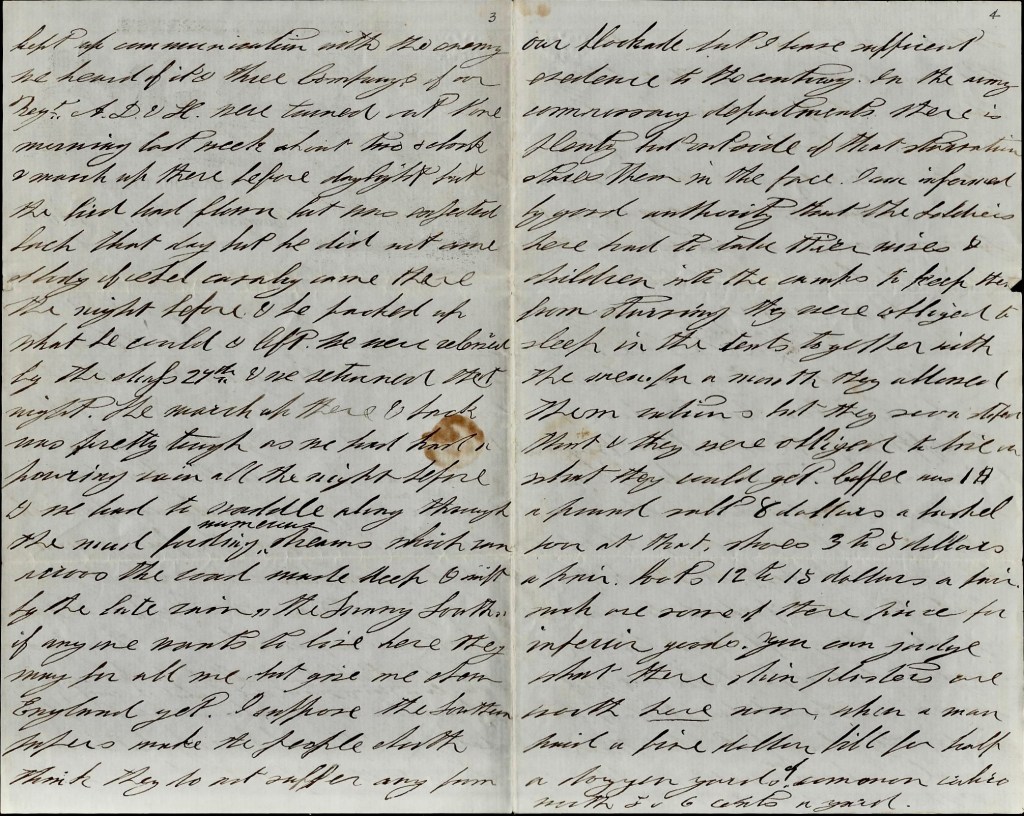 3
kept up communication with the enemy
we heard of it & three Companys of our
Regt. A. D. & H. were turned out one
morning last week about two oclock
& march up there before daylight but
the bird had flown but was expected
back that day but he did not come
a body of rebel cavalry came there
the night before & he packed up
what he could & left. We were relieved
by the 24th & we returned that
night. The march up there & back
was pretty tough as we had had a
pouring rain all the night before
& we had to waddle along through
the mud fording numerous streams which run
across the road made deep & swift
by the late rain, the Sunny South.
if any one wants to live here they
may for all me but give me
England yet. I suppose the Southern
papers make the people
think they do not suffer any from
4
our blockade but I have sufficent
evedence to the contrary. In the army
commissary departments there is
plenty but outside of that starvation
stares them in the face. I am informed
by good authority that the soldiers
here had to take thier wives &
children into the camps to keep them
from starving they were obliged to
sleep in the tents together with
the men. for a month they allowed
them rations but they soon stopped
that & they were obliged to live on
what they could get. Coffee was 1 $
a pound salt 8 dollars a bushel
poor at that, shoes 3 to 5 dollars
a pair. boots 12 to 15 dollars a pair.
such are some of there price for
inferior goods. You can judge
what there shin plasters are
worth here now, when a man
paid a five dollar bill for half
a dozzen yards of common calico
worth 5 or 6 cents a yard.